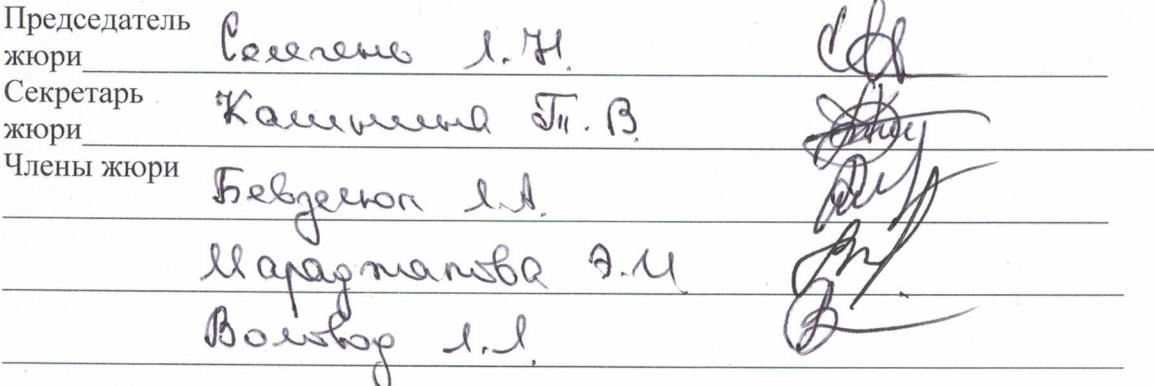 Председатель
жюри Селегень Л.Н.
Секретарь
жюри Калинина Т.В.
Члены жюри
Бевзелюк Л.А.
Мараджапова Э.М
Воловод Л.Л.